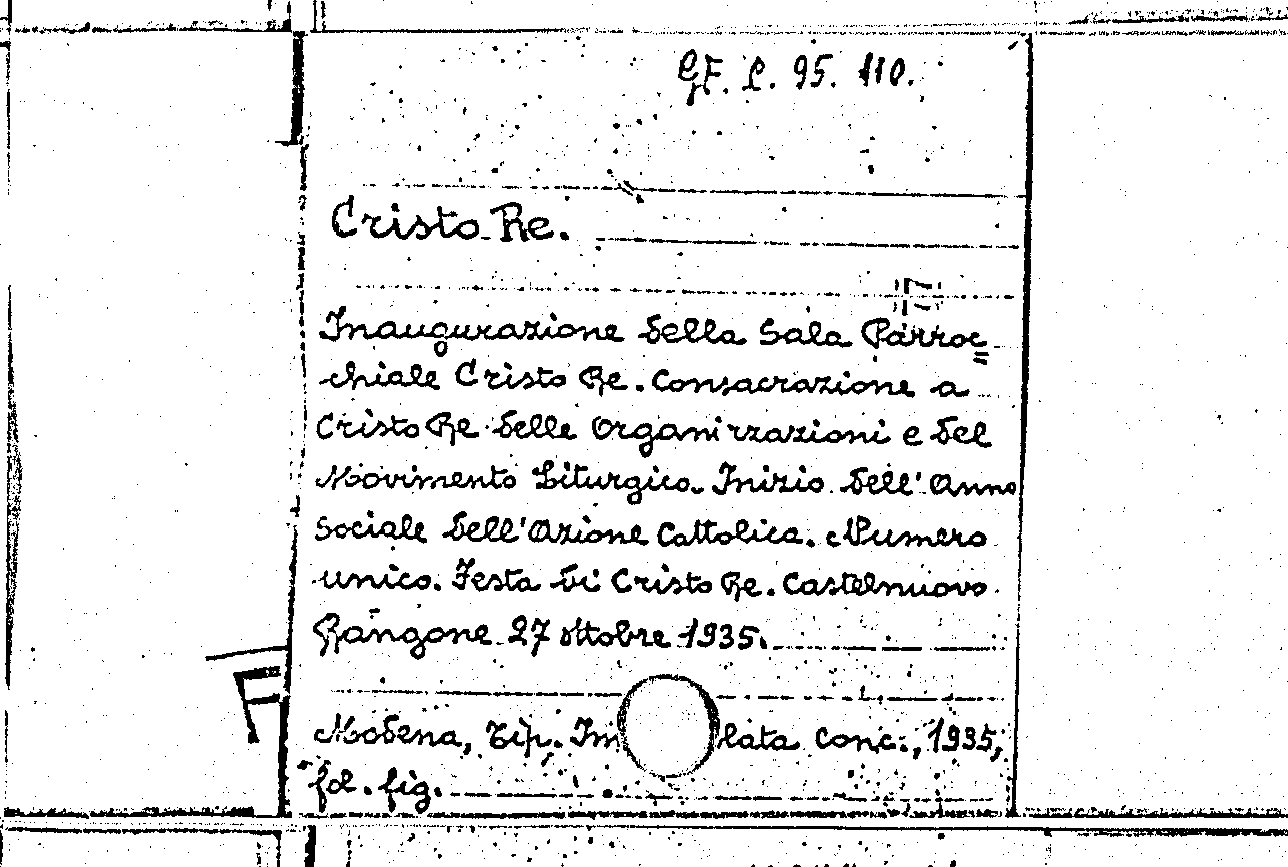 GF. C. 95. 110.
Cristo Re.
Inaugurazione della Sala Parroc=
chiale Cristo Re. Consacrazione a
Cristo Re delle Organizzazioni e del
Movimento Liturgico. Inizio dell'Anno
Sociale dell'Azione Cattolica. Numero
unico. Festa di Cristo Re. Castelnuovo
Rangone 27 ottobre 1935.
Modena, Tip. Im lata Conc., 1935,
fol. fig.